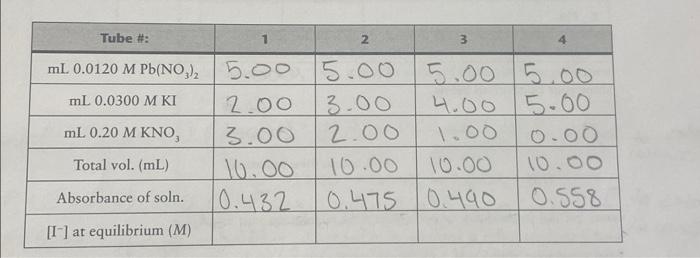 Tube #: 1 2 3 4
mL 0.0120 M Pb(NO₃)₂ 5.00 5.00 5.00 5.00
mL 0.0300 M KI 2.00 3.00 4.00 5.00
mL 0.20 M KNO₃ 3.00 2.00 1.00 0.00
Total vol. (mL) 10.00 10.00 10.00 10.00
Absorbance of soln. 0.432 0.475 0.490 0.558
[I⁻] at equilibrium (M)